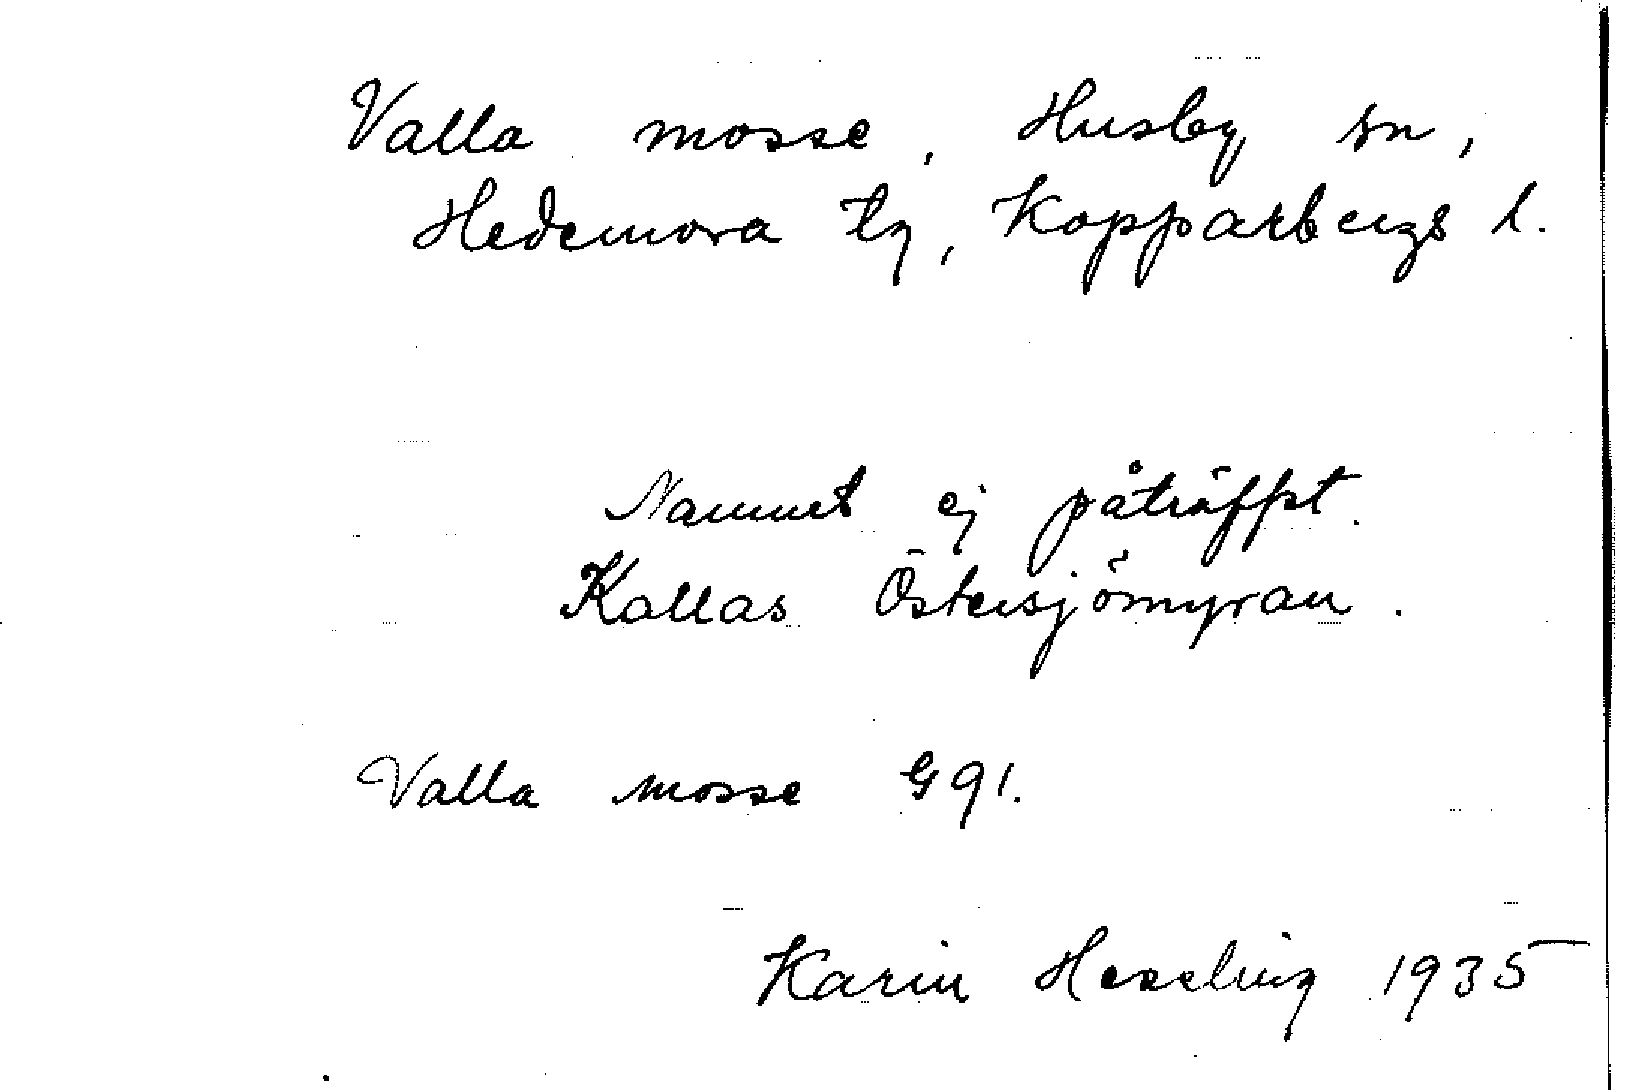 Valla mosse, Husby sn,
Hedemora tg, Kopparbergs l.
Namnet ej påträffat.
Kallas Östersjömyran.
Valla mosse G 91.
Karin Hesseling 1935